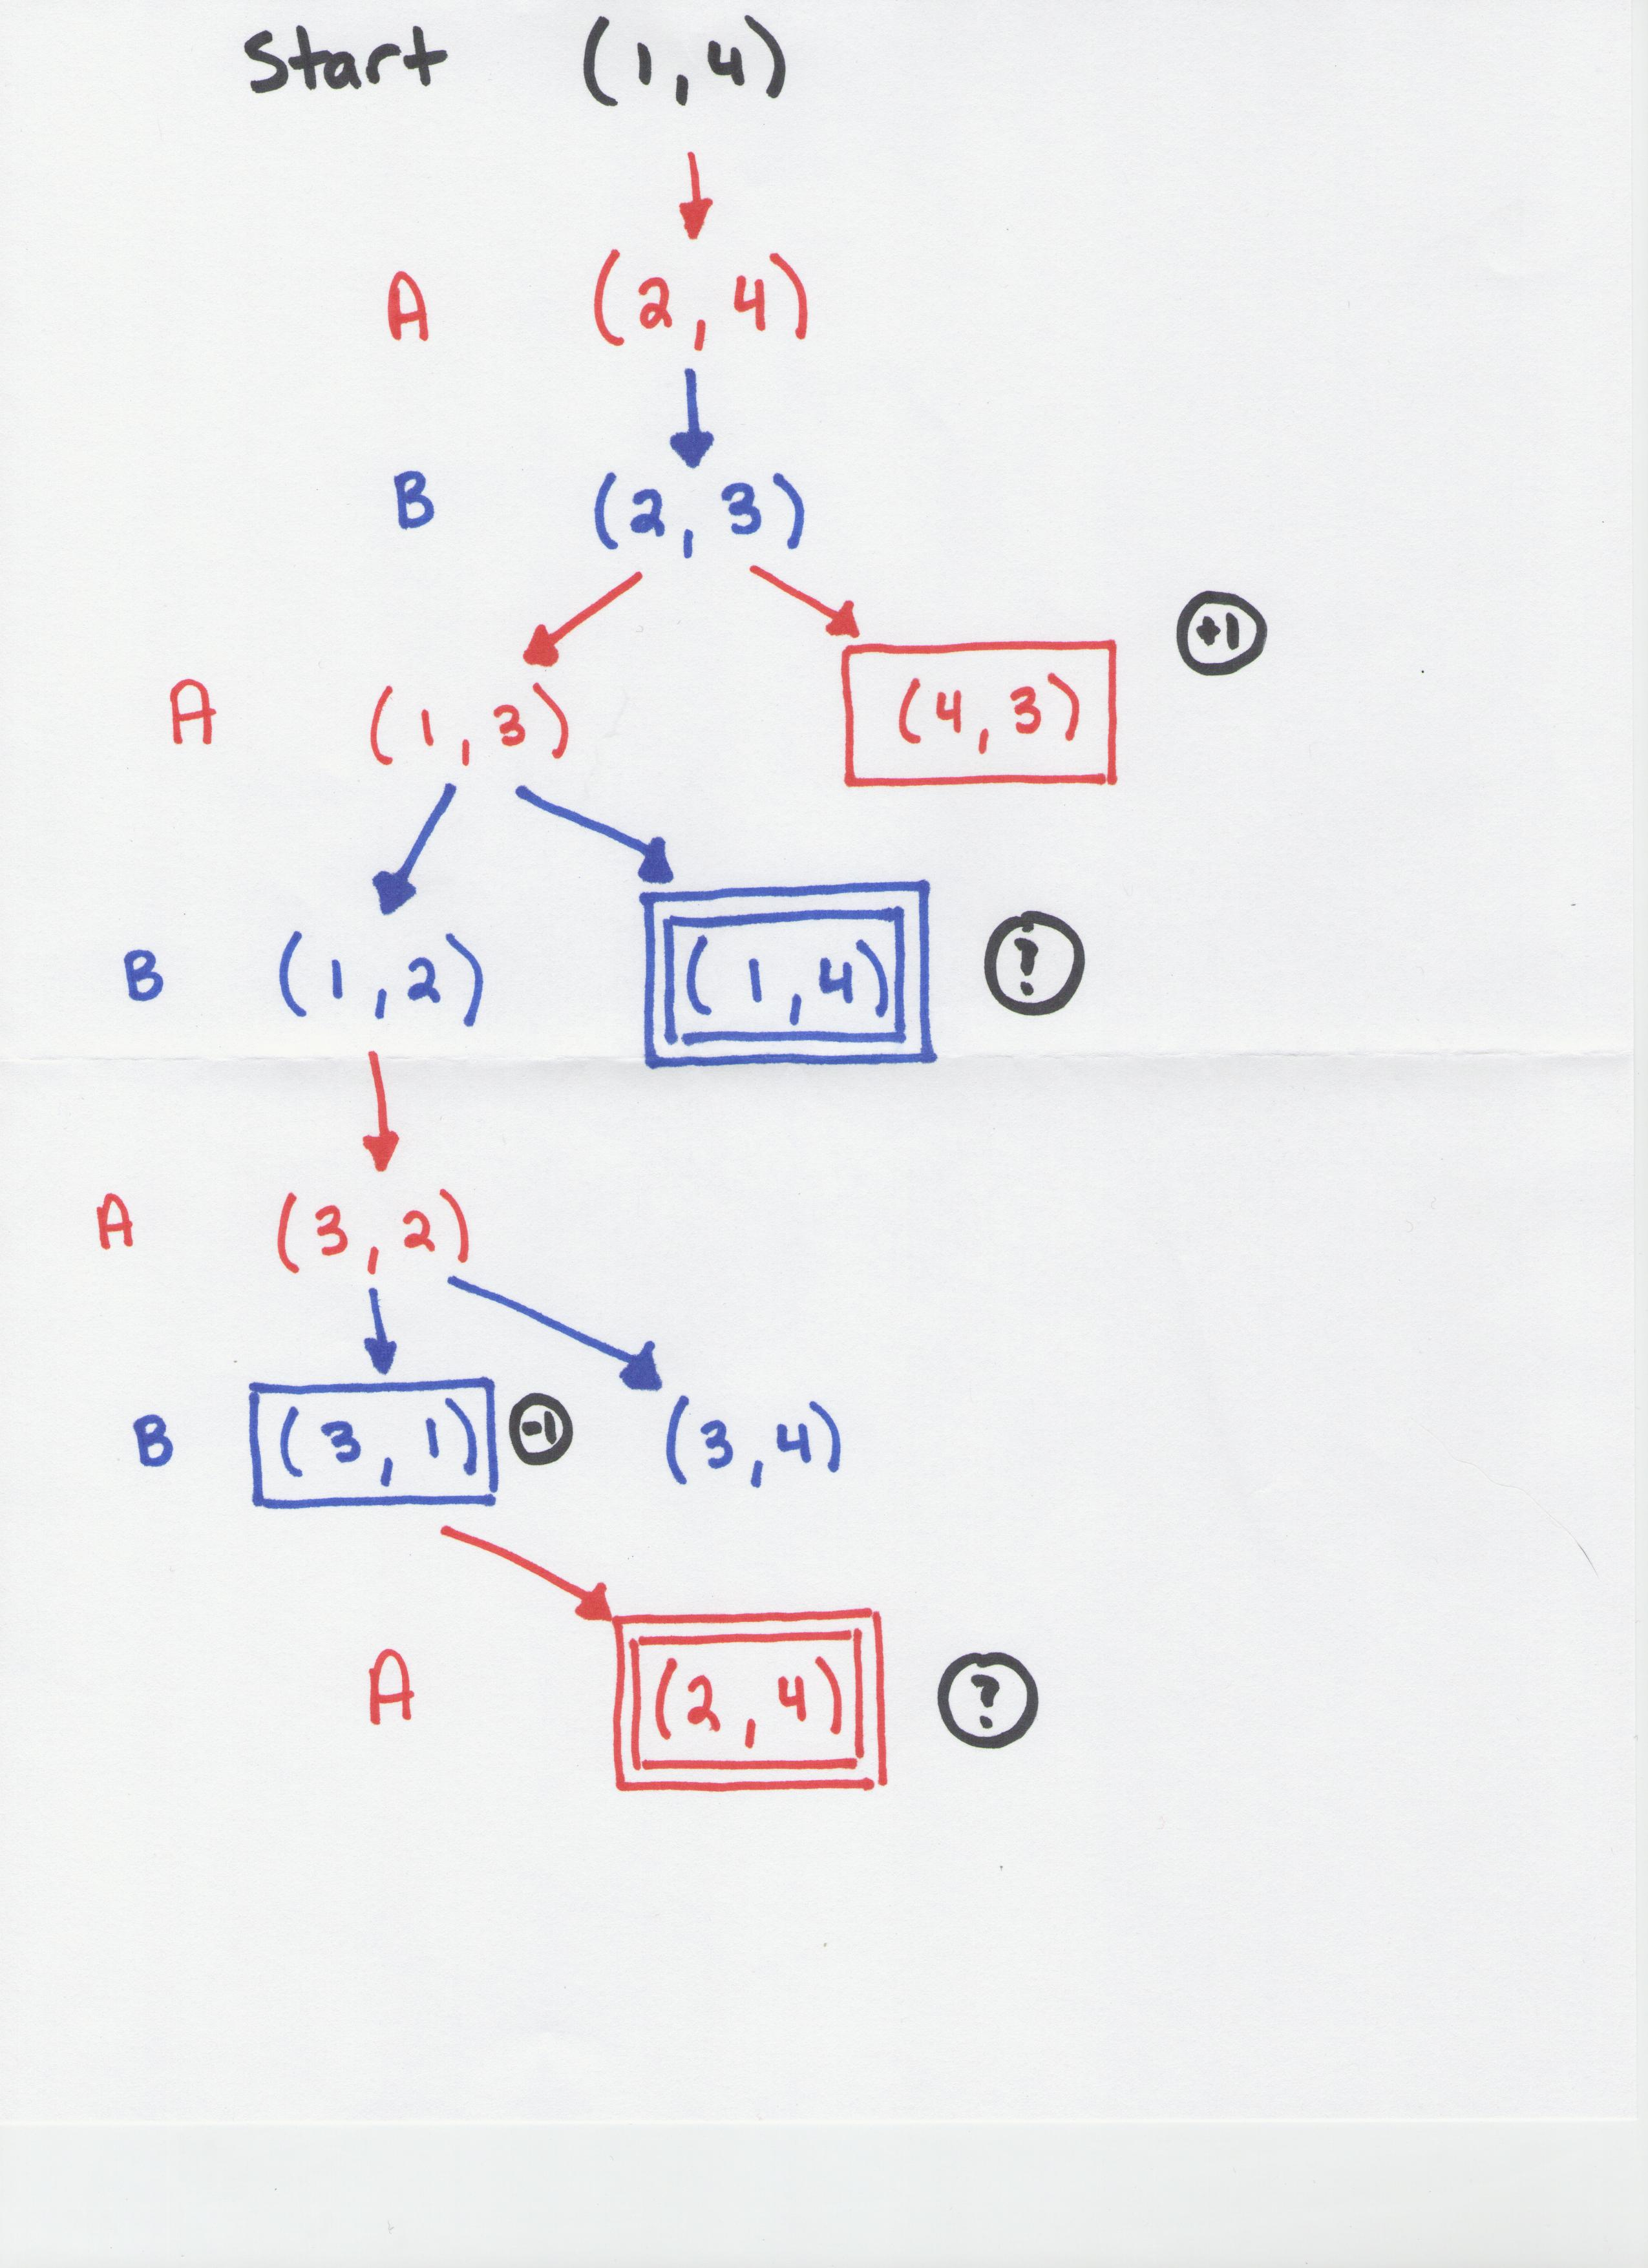 Start (1,4)
A (2,4)
B (2,3)
+1
A (1,3) (4,3)
B (1,2) (1,4) ?
A (3,2)
B (3,1) -1 (3,4)
A (2,4) ?